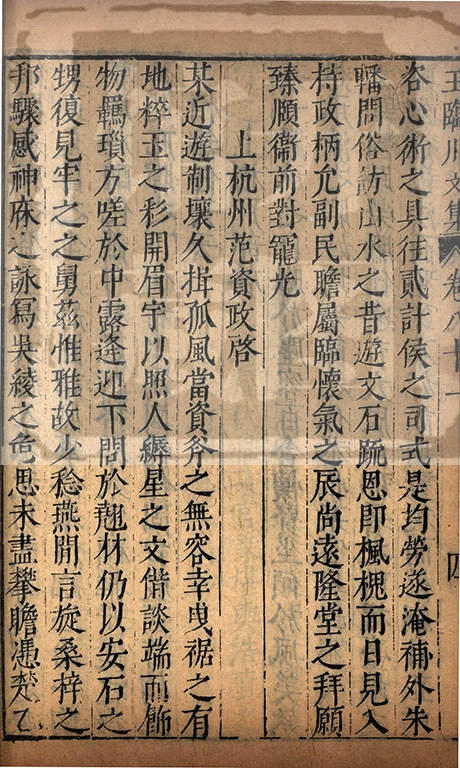 王臨川文集 卷八十一 四
咨心術之具往貳計侯之司式是均勞遂淹補外朱
轓問俗訪山水之昔遊文石疏恩即楓槐而日見入
持政柄允副民瞻屬臨懷氣之辰尚遠隆堂之拜願
臻順衛前對寵光
上杭州范資政啓
某近遊制壤久揖孤風當資斧之無容幸曳裾之有
地粹玉之彩開眉宇以照人縟星之文借談端而飾
物羈瑣方嗟於中露逢迎下問於翹材仍以安石之
甥復見牢之之舅茲惟雅故少稔燕閒言旋桑梓之
邦驟感神庥之詠寫吳綾之危思未盡攀瞻憑楚乙